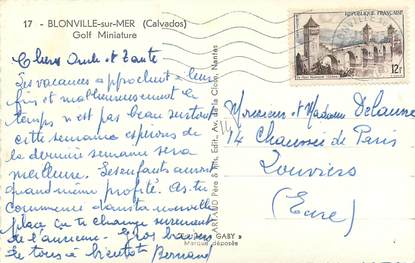 17 - BLONVILLE-sur-MER (Calvados)
Golf Miniature
Chers Oncle et Tante
Les vacances approchent leur
fin et malheureusement le
temps n'est pas beau surtout
cette semaine espérons que
la dernière semaine sera
meilleure. Les enfants auront
quand même profité. As-tu
commencé dans ta nouvelle
place ça te change surement
de l'ancienne. Gros baisers
de tous à bientôt Bernard
ARTAUD Père & Fils, Edit., Av. de la Close, Nantes
GABY »
Marque déposée
REPUBLIQUE FRANÇAISE
12F
Monsieur et Madame Delaune
14 Chaussée de Paris
Louviers
(Eure)